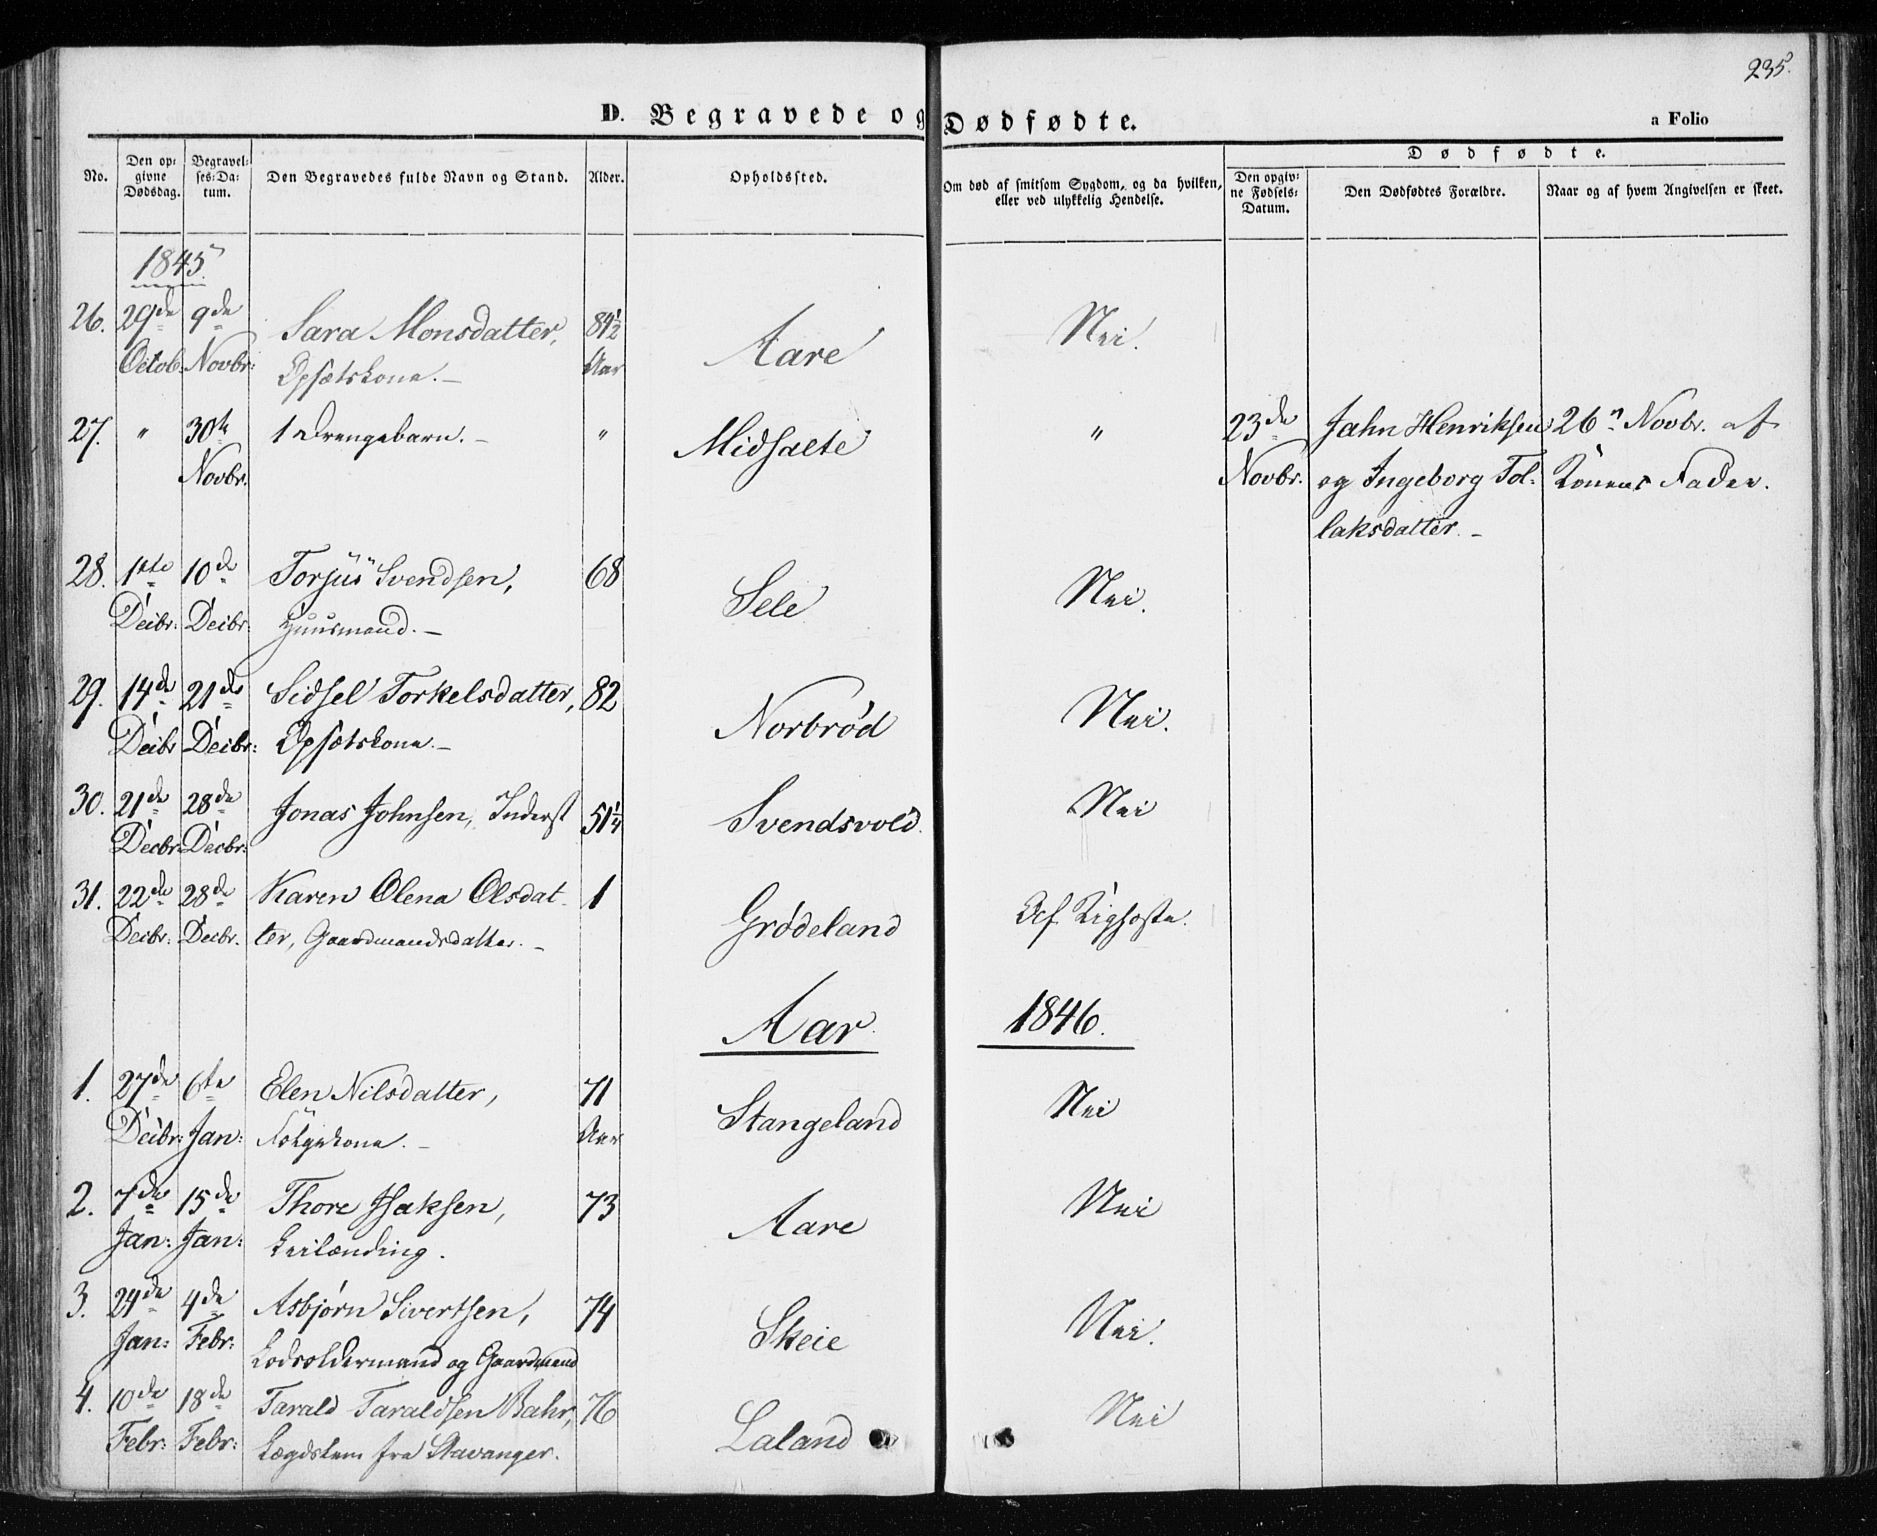 235.
D. Begravede og Dødfødte.
a Folio
No.
Den opgivne Dødsdag.
Begravelses-Datum.
Den Begravedes fulde Navn og Stand.
Alder.
Opholdssted.
Om død af smitsom Sygdom, og da hvilken, eller ved ulykkelig Hendelse.
Dødfødte.
Den opgivne Fødsels-Datum.
Den Dødfødtes Forældre.
Naar og af hvem Angivelsen er skeet.
1845.
26. 29de 9de Sara Monsdatter, 84½ Aare Nei.
Octob: Novbr: Opsætskone.- Aar
27. " 30te 1 Drengebarn.- " Midsalte " 23de Jahn Henriksen 26n Novbr. af
Novbr. Novbr. og Ingeborg Tol: Konens Fader.
laksdatter.-
28. 1ste 10de Torjüs Svendsen, 68 Sele Nei.
Decbr: Decbr: Huusmand.-
29. 14de 21de Sidsel Torkelsdatter, 82 Norbrød Nei.
Decbr Decbr: Opsætskone.-
30. 21de 28de Jonas Johnsen, Inderst 51¼ Svendsvold. Nei
Decbr: Decbr:
31. 22de 28de Karen Olena Olsdat- 1 Grødeland Af Kighoste.
Decbr: Decbr. ter, Gaardmandsdatter.-
Aar 1846.
1. 27de 6te Elen Nilsdatter, 71 Stangeland Nei
Decbr: Jan: Følgekone.- Aar
2. 7de 15de Thore Isaksen, 73 Aare Nei
Jan: Jan: Leilænding.
3. 24de 4de Asbjørn Sivertsen, 74 Skeie Nei.
Jan: Febr: Lodsoldermand og Gaardmand
4. 10de 18de Tarald Taraldsen Bahr, 76 Laland Nei
Febr: Febr: Lægdslem fra Stavanger.